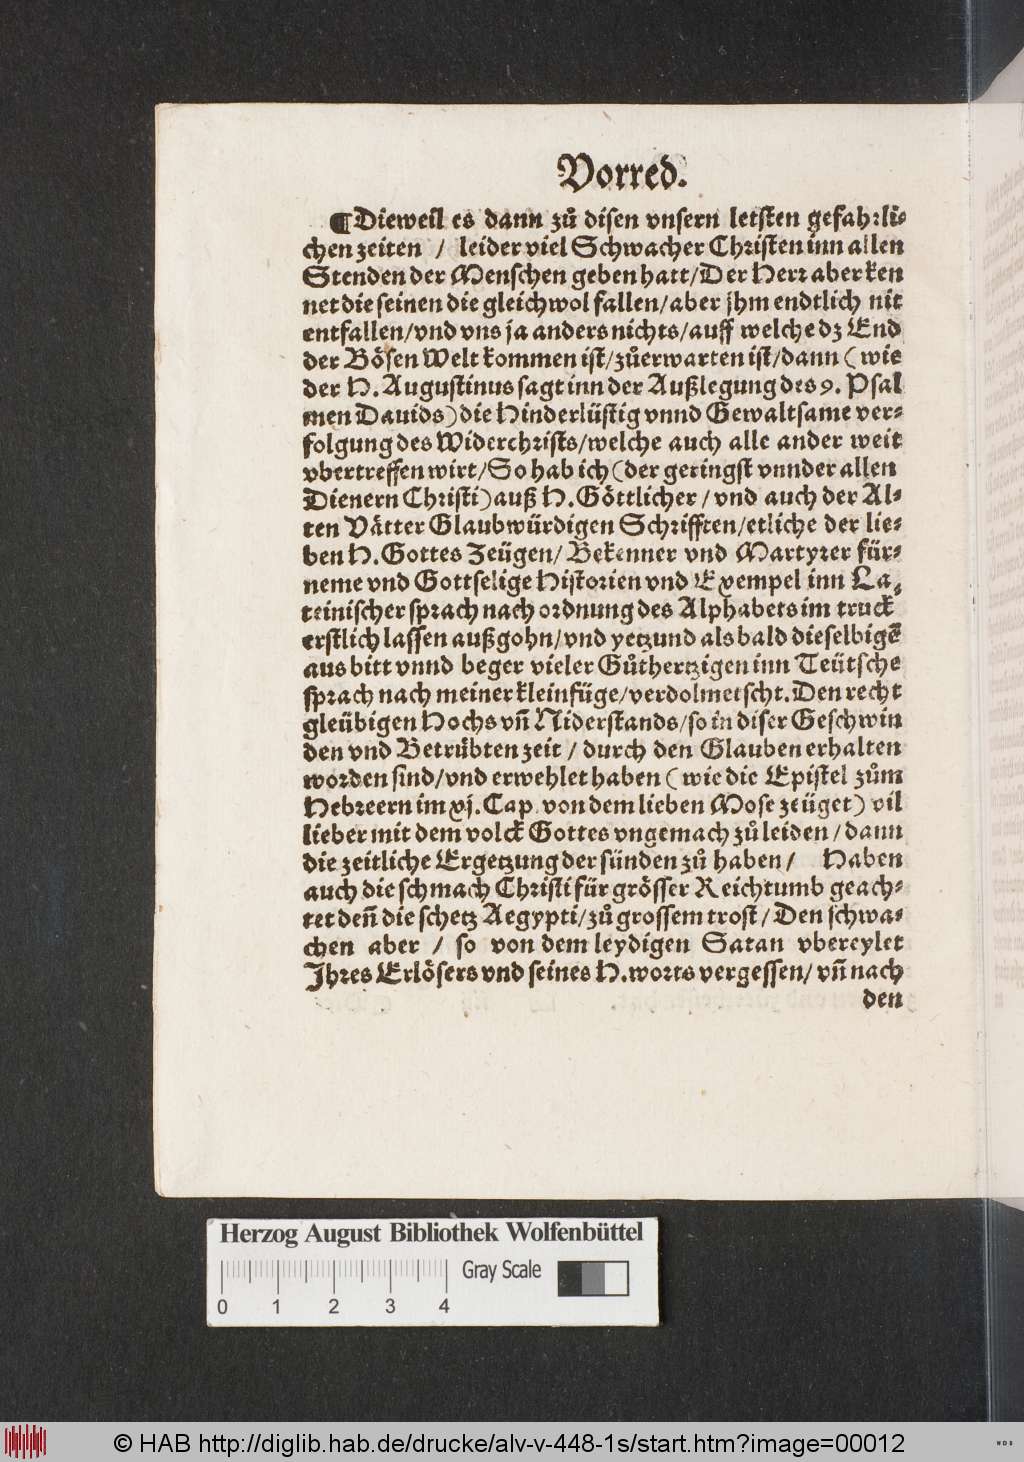 Vorred.
¶Dieweil es dann zů disen vnsern letsten gefahrli⸗
chen zeiten / leider viel Schwacher Christen inn allen
Stenden der Menschen geben hatt/Der Herr aber ken
net die seinen die gleichwol fallen/aber jhm endtlich nit
entfallen/vnd vns ja anders nichts/auff welche dz End
der Bösen Welt kommen ist/zůerwarten ist/dann (wie
der H. Augustinus sagt inn der Außlegung des 9. Psal
men Dauids) die Hinderlüstig vnnd Gewaltsame ver⸗
folgung des Widerchrists/welche auch alle ander weit
vbertreffen wirt/So hab ich (der geringst vnnder allen
Dienern Christi) auß H. Göttlicher / vnd auch der Al⸗
ten Vätter Glaubwürdigen Schrifften/etliche der lie⸗
ben H. Gottes Zeügen/ Bekenner vnd Martyrer für⸗
neme vnd Gottselige Historien vnd Exempel inn La⸗
teinischer sprach nach ordnung des Alphabets im truck
erstlich lassen außgohn/vnd yetzund als bald dieselbigē
aus bitt vnnd beger vieler Gůthertzigen inn Teütsche
sprach nach meiner kleinfüge/verdolmetscht. Den recht
gleübigen Hochs vn̄ Niderstands/so in diser Geschwin
den vnd Betrübten zeit / durch den Glauben erhalten
worden sind/vnd erwehlet haben (wie die Epistel zům
Hebreern im xj. Cap. von dem lieben Mose zeüget) vil
lieber mit dem volck Gottes vngemach zů leiden / dann
die zeitliche Ergetzung der sünden zů haben / Haben
auch die schmach Christi für grösser Reichtumb geach⸗
tet den̄ die schetz Aegypti/zů grossem trost / Den schwa⸗
chen aber / so von dem leydigen Satan vbereylet
Jhres Erlösers vnd seines H. worts vergessen/ vn̄ nach
den
Herzog August Bibliothek Wolfenbüttel
Gray Scale
0 1 2 3 4
© HAB http://diglib.hab.de/drucke/alv-v-448-1s/start.htm?image=00012
WDB